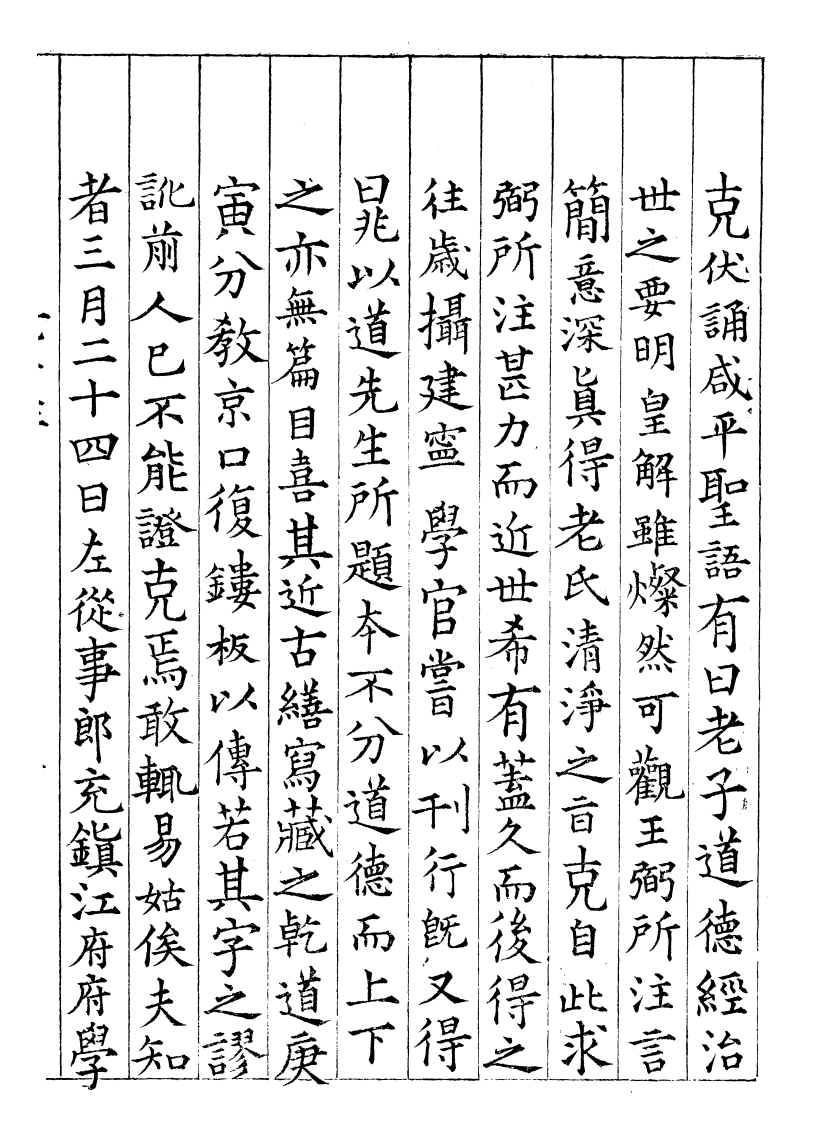 克伏誦咸平聖語有曰老子道德經治
世之要明皇解雖燦然可觀王弼所注言
簡意深真得老氏清淨之㫖克自此求
弼所注甚力而近世希有蓋久而後得之
往歲攝建寧學官嘗以刊行既又得
晁以道先生所題本不分道德而上下
之亦無篇目喜其近古繕寫藏之乾道庚
寅分教京口復鏤板以傳若其字之謬
訛前人已不能證克焉敢輒易姑俟夫知
者三月二十四日左從事郎充鎮江府府學